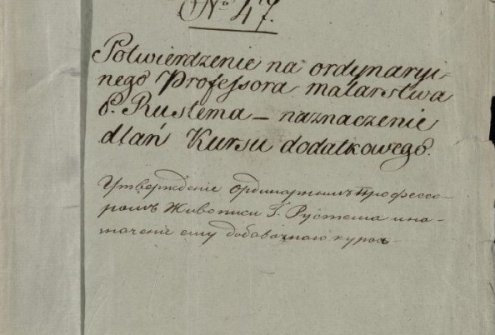 № 47.
Potwierdzenie na ordynaryi-
nego Professora malarstwa
P. Rustema – naznaczenie
dlań Kursu dodatkowego.
Утвержденіе ординарнымъ Професso-
ромъ Живописи Г. Рустема и на-
значеніе ему добавочнаго курса